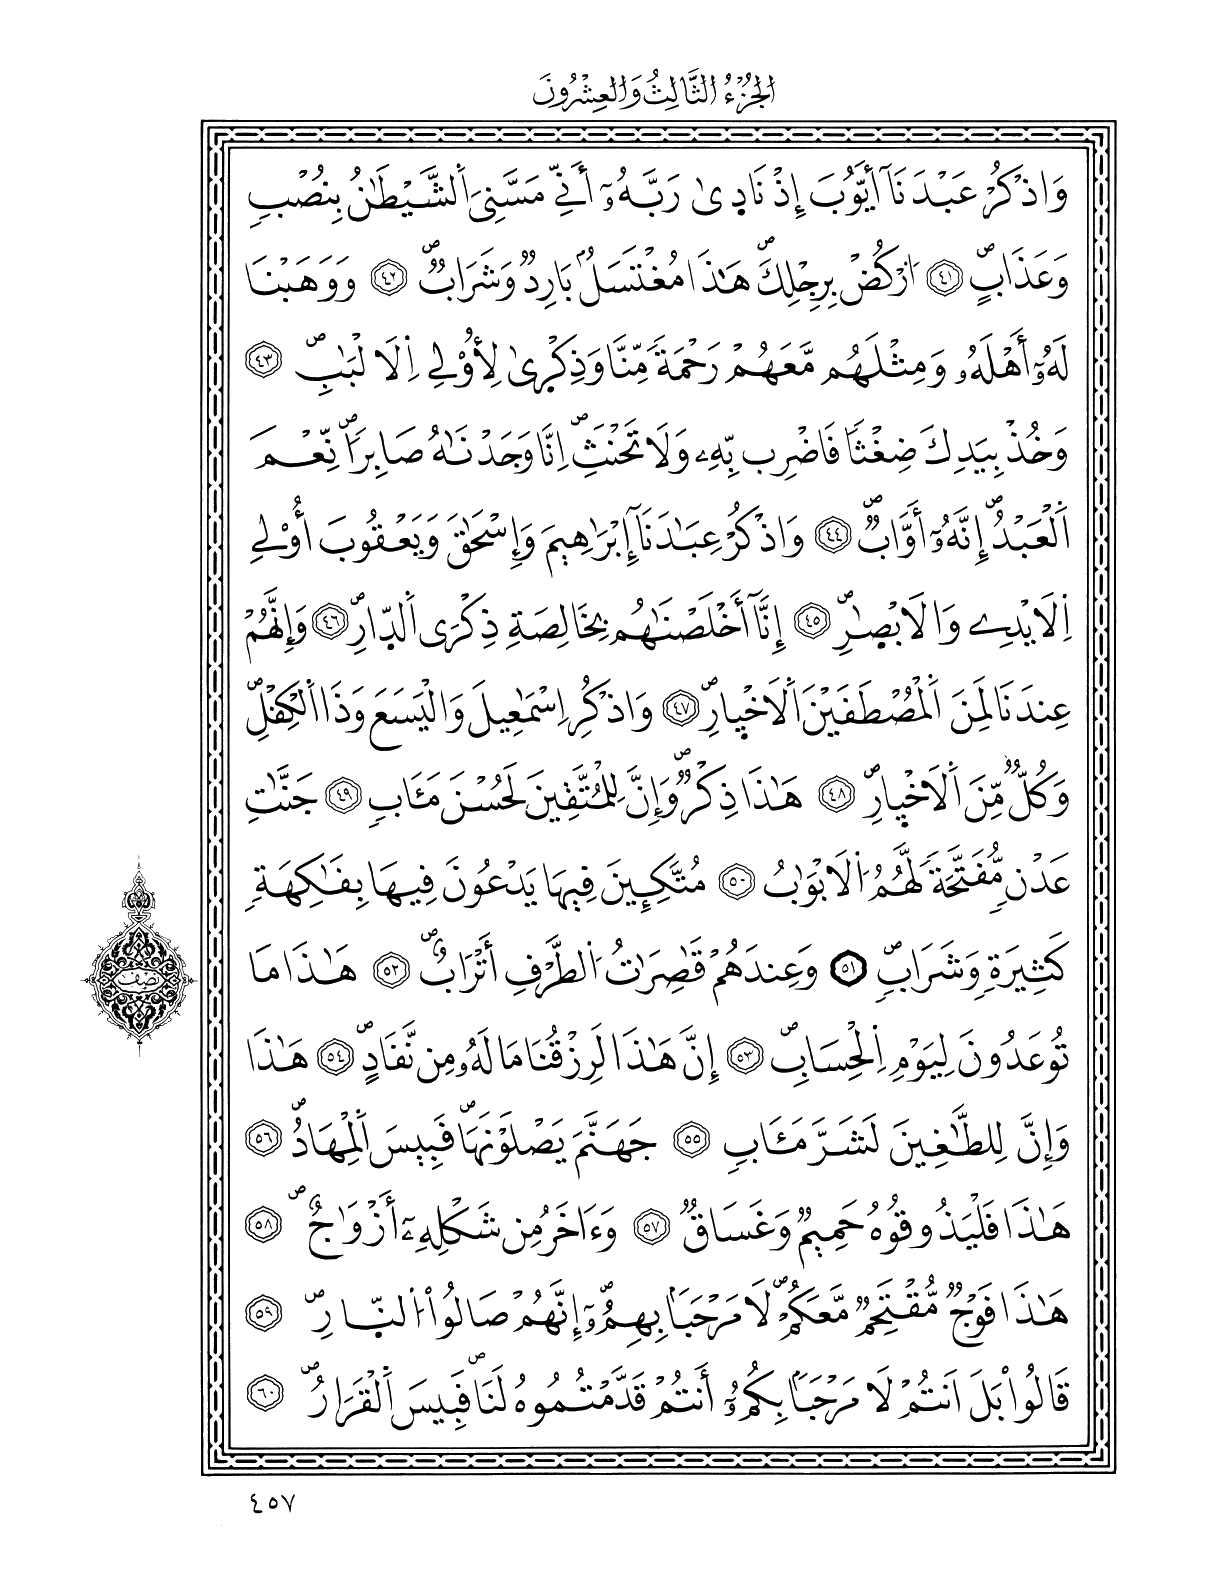 الجُزْءُ الثَّالِثُ وَالعِشْرُونَ
وَاذْكُرْ عَبْدَنَآ أَيُّوبَ إِذْ نَادٜىٰ رَبَّهُۥٓ أَنِّے مَسَّنِيَ اَ۬لشَّيْطَٰنُ بِنُصْبٖ
وَعَذَابٍۖ ٤١ اَ۟رْكُضْ بِرِجْلِكَۖ هَٰذَا مُغْتَسَلُۢ بَارِدٞ وَشَرَابٞۖ ٤٢ وَوَهَبْنَا
لَهُۥٓ أَهْلَهُۥ وَمِثْلَهُم مَّعَهُمْ رَحْمَةٗ مِّنَّا وَذِكْرٜىٰ لِأُوْلِے اِ۬لَالْبَٰبِۖ ٤٣
وَخُذْ بِيَدِكَ ضِغْثاٗ فَاضْرِب بِّهِۦ وَلَا تَحْنَثِۖ اِنَّا وَجَدْنَٰهُ صَابِراٗۖ نِّعْمَ
اَ۬لْعَبْدُۖ إِنَّهُۥٓ أَوَّابٞۖ ٤٤ وَاذْكُرْ عِبَٰدَنَآ إِبْرَٰهِيمَ وَإِسْحَٰقَ وَيَعْقُوبَ أُوْلِے
اِ۬لَايْدِے وَالَابْصٰٜرِۖ ٤٥ إِنَّآ أَخْلَصْنَٰهُم بِخَالِصَةِ ذِكْرَى اَ۬لدّٜارِۖ ٤٦ وَإِنَّهُمْ
عِندَنَا لَمِنَ اَ۬لْمُصْطَفَيْنَ اَ۬لَاخْيٜارِۖ ٤٧ وَاذْكُرِ اِسْمَٰعِيلَ وَالْيَسَعَ وَذَا اَ۬لْكِفْلِۖ
وَكُلّٞ مِّنَ اَ۬لَاخْيٜارِۖ ٤٨ هَٰذَا ذِكْرٞۖ وَإِنَّ لِلْمُتَّقِينَ لَحُسْنَ مَـَٔابٖ ٤٩ جَنَّٰتِ
عَدْنٖ مُّفَتَّحَةٗ لَّهُمُ اُ۬لَابْوَٰبُ ٥٠ مُتَّكِـِٔينَ فِيهَا يَدْعُونَ فِيهَا بِفَٰكِهَةٖ
كَثِيرَةٖ وَشَرَابٖۖ ٥١ وَعِندَهُمْ قَٰصِرَٰتُ اُ۬لطَّرْفِ أَتْرَابٌۖ ٥٢ هَٰذَا مَا
تُوعَدُونَ لِيَوْمِ اِ۬لْحِسَابِۖ ٥٣ إِنَّ هَٰذَا لَرِزْقُنَا مَا لَهُۥ مِن نَّفَادٍۖ ٥٤ هَٰذَا
وَإِنَّ لِلطَّٰغِينَ لَشَرَّ مَـَٔابٖ ٥٥ جَهَنَّمَ يَصْلَوْنَهَاۖ فَبِيسَ اَ۬لْمِهَادُۖ ٥٦
هَٰذَا فَلْيَذُوقُوهُ حَمِيمٞ وَغَسَاقٞ ٥٧ وَءَاخَرُ مِن شَكْلِهِۦٓ أَزْوَٰجٌۖ ٥٨
هَٰذَا فَوْجٞ مُّقْتَحِمٞ مَّعَكُمْ لَا مَرْحَباَۢ بِهِمُۥٓۖ إِنَّهُمْ صَالُواْ اُ۬لنّٜارِۖ ٥٩
قَالُواْ بَلَ اَنتُمْ لَا مَرْحَباَۢ بِكُمُۥٓ أَنتُمْ قَدَّمْتُمُوهُ لَنَاۖ فَبِيسَ اَ۬لْقَرَارُۖ ٦٠
نصف
٤٥٧